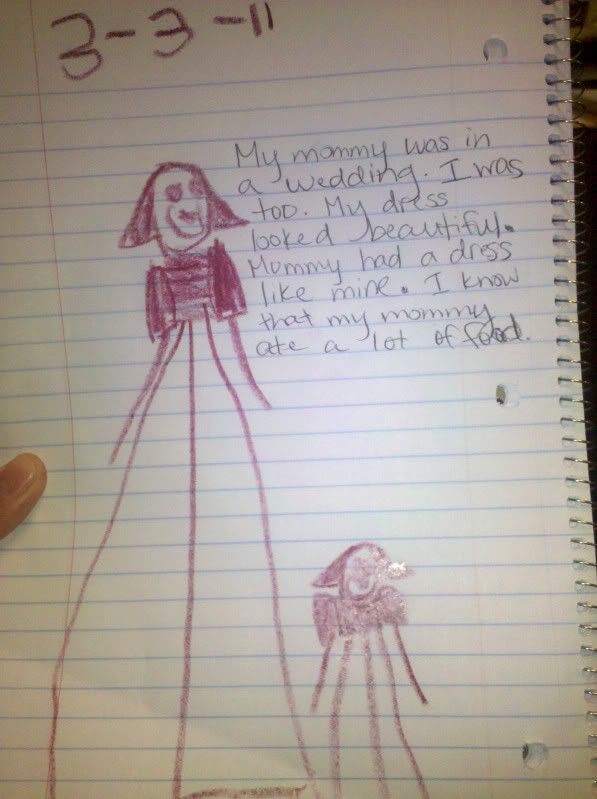 3-3-11
My mommy was in
a wedding. I was
too. My dress
looked beautiful.
Mommy had a dress
like mine. I know
that my mommy
ate a lot of food.